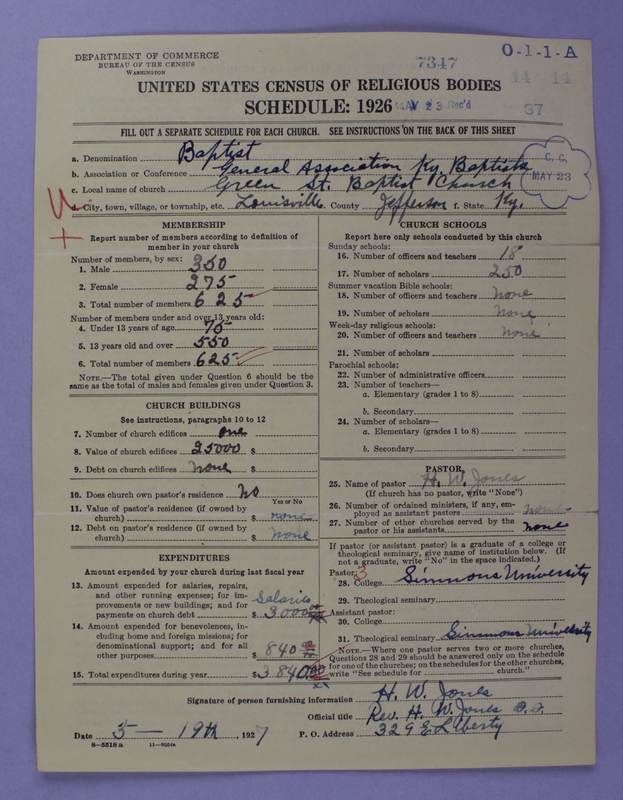 DEPARTMENT OF COMMERCE
BUREAU OF THE CENSUS
WASHINGTON
7347
O-1-1-A
14 14
UNITED STATES CENSUS OF RELIGIOUS BODIES
SCHEDULE: 1926
MAY 23 Rec'd
37
FILL OUT A SEPARATE SCHEDULE FOR EACH CHURCH. SEE INSTRUCTIONS ON THE BACK OF THIS SHEET
a. Denomination Baptist
b. Association or Conference General Association Ky Baptists
c. Local name of church Green St. Baptist Church
C. G.
MAY 23
d. City, town, village, or township, etc. Louisville e. County Jefferson f. State Ky.
MEMBERSHIP
Report number of members according to definition of
member in your church
Number of members, by sex:
1. Male 350
2. Female 275
3. Total number of members 625
Number of members under and over 13 years old:
4. Under 13 years of age 75
5. 13 years old and over 550
6. Total number of members 625
NOTE.—The total given under Question 6 should be the
same as the total of males and females given under Question 3.
CHURCH BUILDINGS
See instructions, paragraphs 10 to 12
7. Number of church edifices one
8. Value of church edifices 25000 $
9. Debt on church edifices none $
10. Does church own pastor's residence? No
Yes or No
11. Value of pastor's residence (if owned by
church) $ none
12. Debt on pastor's residence (if owned by
church) $ none
EXPENDITURES
Amount expended by your church during last fiscal year
13. Amount expended for salaries, repairs,
and other running expenses; for im-
provements or new buildings; and for
payments on church debt Salaries $ 3000
14. Amount expended for benevolences, in-
cluding home and foreign missions; for
denominational support; and for all
other purposes $ 840
15. Total expenditures during year $ 3840.00
CHURCH SCHOOLS
Report here only schools conducted by this church
Sunday schools:
16. Number of officers and teachers 18
17. Number of scholars 250
Summer vacation Bible schools:
18. Number of officers and teachers None
19. Number of scholars None
Week-day religious schools:
20. Number of officers and teachers None
21. Number of scholars
Parochial schools:
22. Number of administrative officers
23. Number of teachers—
a. Elementary (grades 1 to 8)
b. Secondary
24. Number of scholars—
a. Elementary (grades 1 to 8)
b. Secondary
PASTOR
25. Name of pastor H. W. Jones
(If church has no pastor, write "None")
26. Number of ordained ministers, if any, em-
ployed as assistant pastors none
27. Number of other churches served by the
pastor or his assistants none
If pastor (or assistant pastor) is a graduate of a college or
theological seminary, give name of institution below. (If
not a graduate, write "No" in the space indicated.)
Pastor: 3
28. College Simmons University
29. Theological seminary
Assistant pastor:
30. College
31. Theological seminary Simmons University
NOTE.—Where one pastor serves two or more churches,
Questions 28 and 29 should be answered only on the schedule
for one of the churches; on the schedules for the other churches,
write "See schedule for church."
Signature of person furnishing information H. W. Jones
Official title Rev. H. W. Jones D. D.
Date 5 — 19th, 1927
P. O. Address 329 E Liberty
8—5518 a 11—9034a